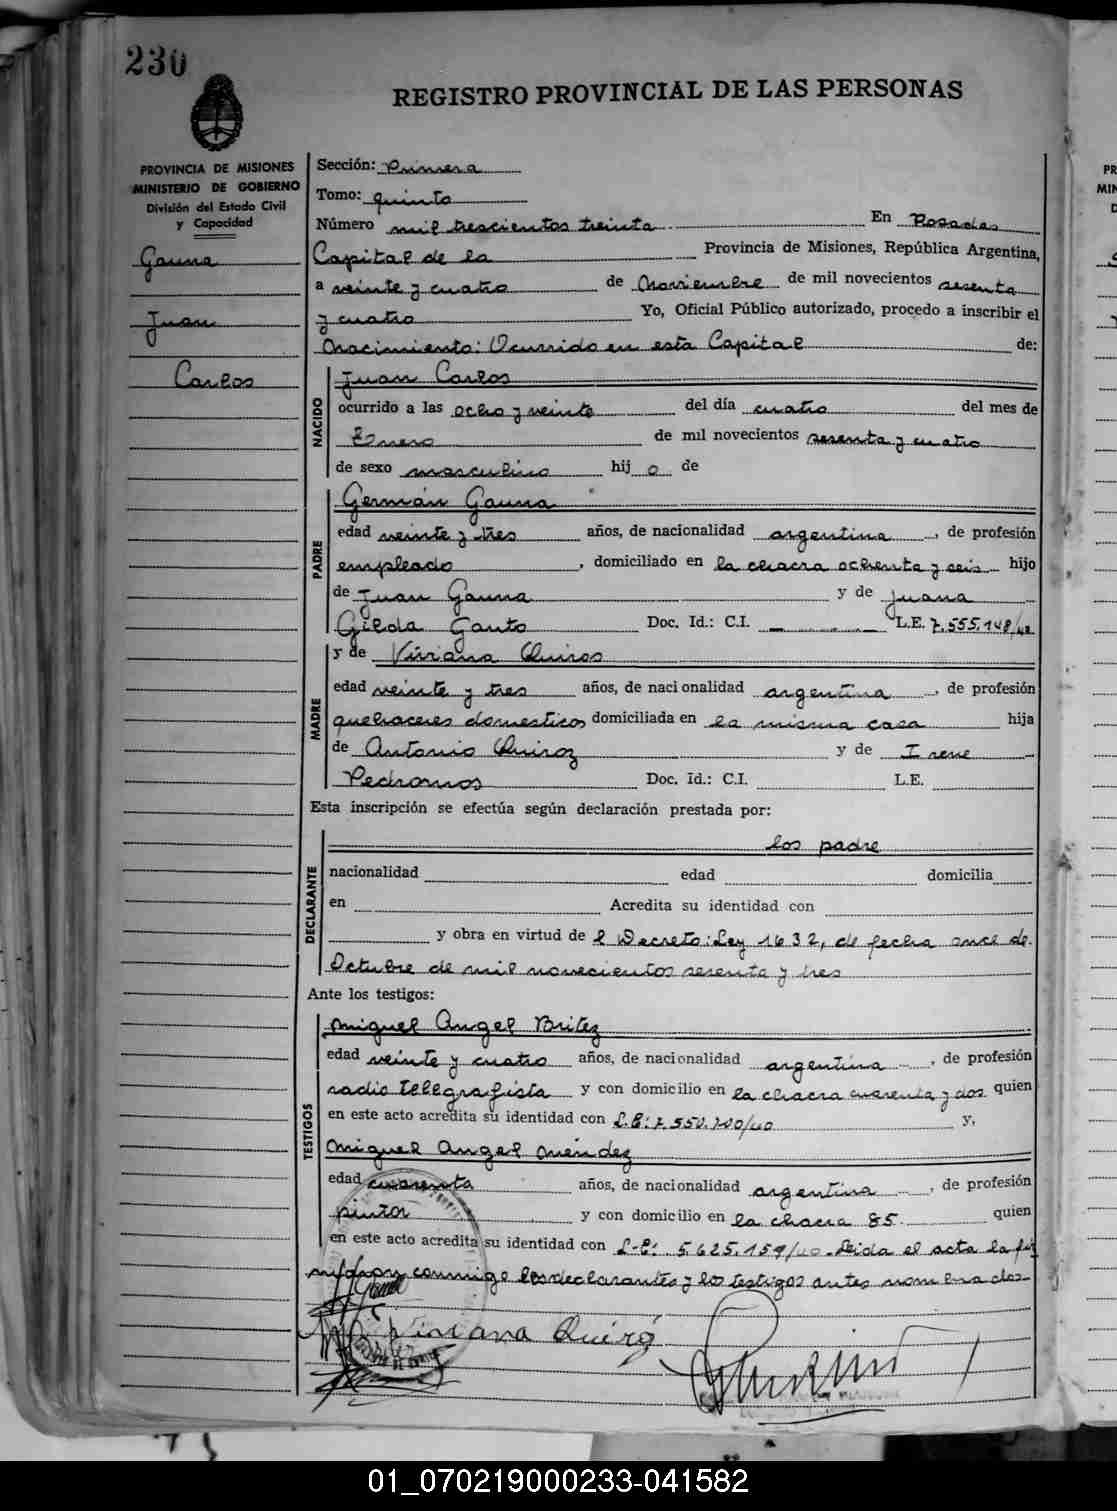 230
REGISTRO PROVINCIAL DE LAS PERSONAS
PROVINCIA DE MISIONES
MINISTERIO DE GOBIERNO
División del Estado Civil
y Capacidad
Gauna
Juan
Carlos
Sección: Primera
Tomo: quinto
Número mil trescientos treinta En Posadas
Capital de la Provincia de Misiones, República Argentina,
a veinte y cuatro de Noviembre de mil novecientos sesenta
y cuatro Yo, Oficial Público autorizado, procedo a inscribir el
Nacimiento: Ocurrido en esta Capital de:
NACIDO
Juan Carlos
ocurrido a las ocho y veinte del día cuatro del mes de
Enero de mil novecientos sesenta y cuatro
de sexo masculino hij o de
PADRE
Germán Gauna
edad veinte y tres años, de nacionalidad argentina, de profesión
empleado, domiciliado en la chacra ochenta y seis hijo
de Juan Gauna y de Juana
Gilda Gauto Doc. Id.: C.I. L.E. 7.555.148/
MADRE
y de Viviana Quiros
edad veinte y tres años, de nacionalidad argentina, de profesión
quehaceres domesticos domiciliada en la misma casa hija
de Antonio Quiroz y de Irene
Pedromos Doc. Id.: C.I. L.E.
Esta inscripción se efectúa según declaración prestada por:
DECLARANTE
los padre
nacionalidad edad domicilia
en Acredita su identidad con
y obra en virtud de l Decreto: Ley 1632, de fecha once de
Octubre de mil novecientos sesenta y tres
Ante los testigos:
TESTIGOS
Miguel Angel Britez
edad veinte y cuatro años, de nacionalidad argentina, de profesión
radio telegrafista y con domicilio en la chacra cuarenta y dos quien
en este acto acredita su identidad con L.E: 7.550.700/40 y,
Miguel Angel Méndez
edad cuarenta años, de nacionalidad argentina, de profesión
pintor y con domicilio en la chacra 85 quien
en este acto acredita su identidad con L-E: 5.625.159/40 - Leida el acta la fir
maron conmigo los declarantes y los testigos antes nombrados-
Viviana Quiroz
01_070219000233-041582